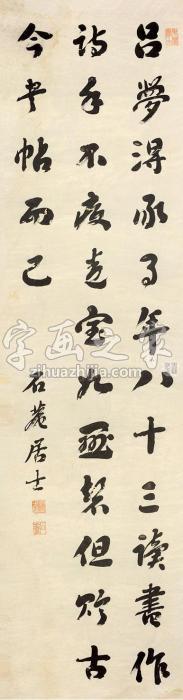 呂夢得承事年八十三讀書作
詩手不廢卷室如懸磬但貯古
今書帖而已
石菴居士
字画之家
zihuazhijia.com